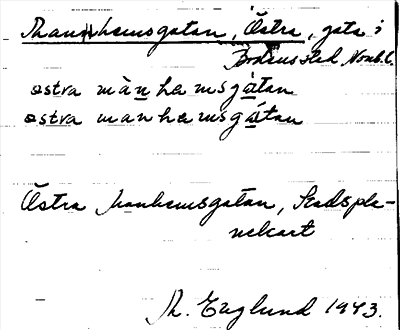 Mannhemsgatan, Östra, gata i
Bodens stad, Norrb. l.
østra mànhæmsgàtan
østra manhæmsgátan
Östra Manhemsgatan, Stadspla-
nekart
M. Englund 1943.